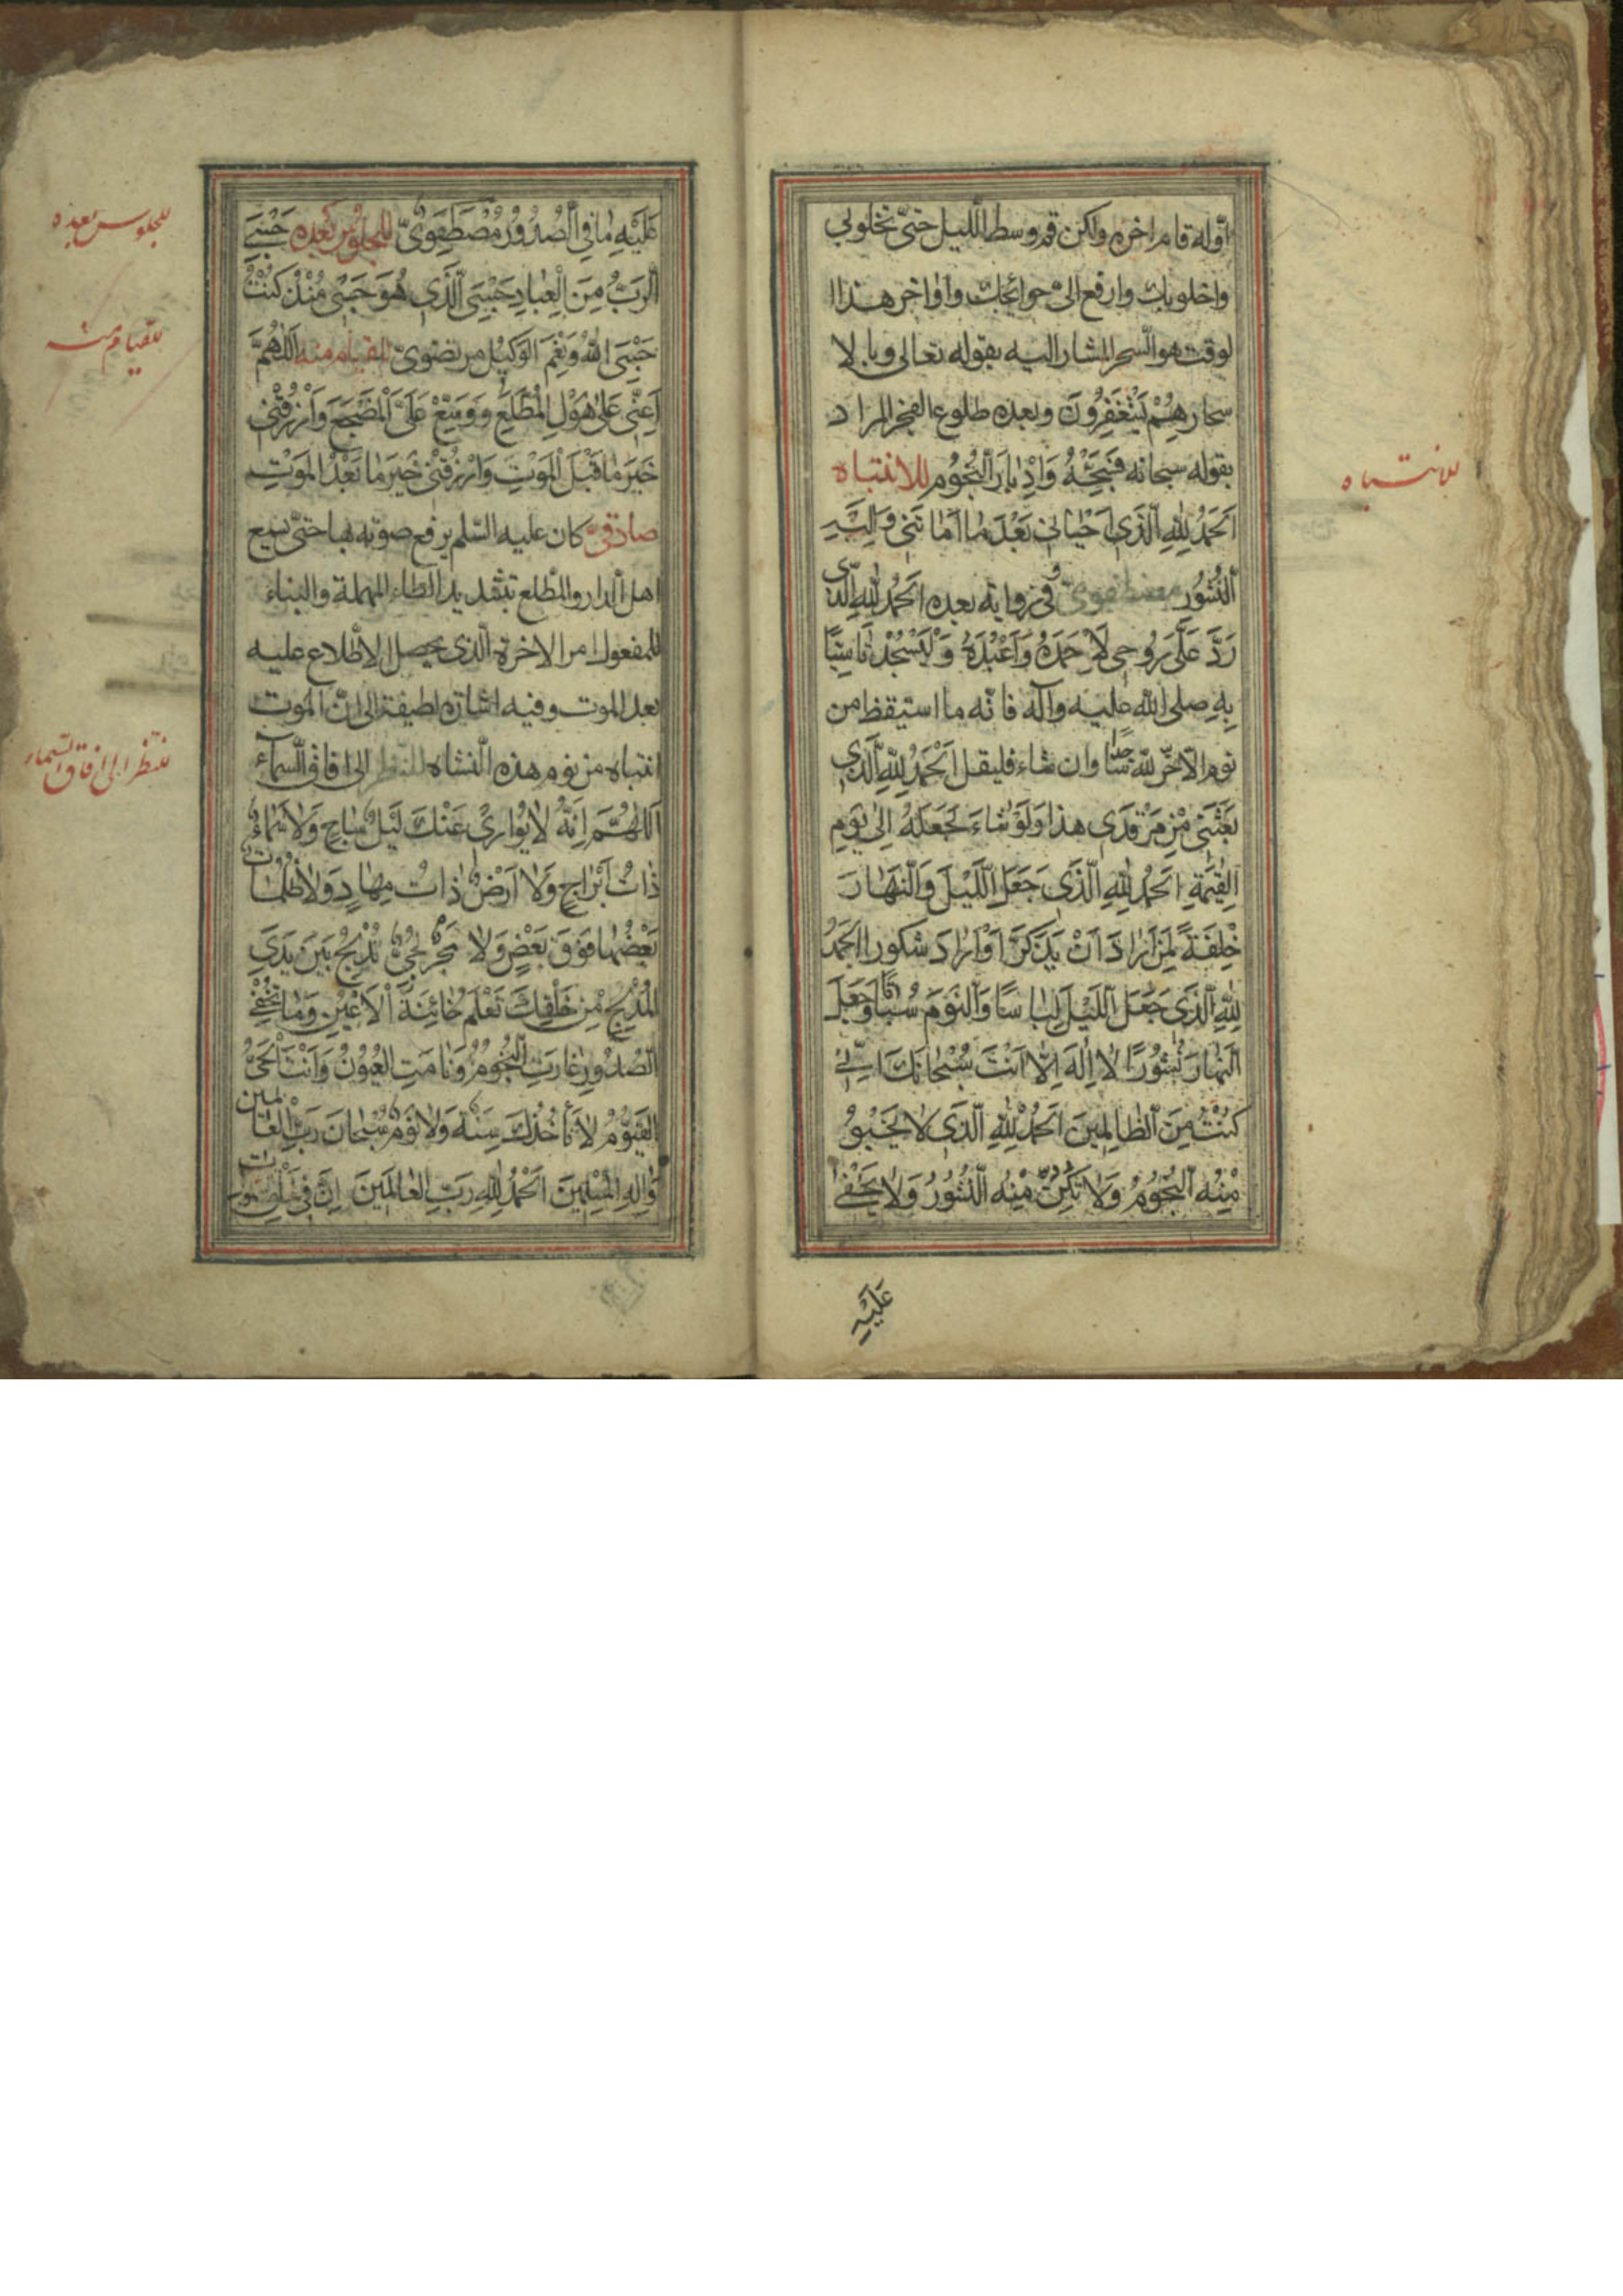 اوّله قام اخره ولكن قم وسط اللّيل حتّى تخلو بي
واخلو بك وارفع الىّ حوائجك واواخر هذا ا
لوقت هو السّحر المشار اليه بقوله تعالى وبا لا
سحارِ هُمْ يَسْتَغْفِرُونَ وبعده طلوع الفجر المراد
بقوله سبحانه فَسَبِّحْهُ وَاِدْبٰارَ النُّجُوم للانتباه
للانتباه
اَلْحَمْدُ لِلّٰهِ الَّذي اَحْيٰاني بَعْدَ مٰا اَمٰاتَني وَاِلَيْهِ
النُّشُورُ مصطفوىّ وفي رواية بعده اَلْحَمْدُ لِلّٰهِ الَّذي
رَدَّ عَلَىَّ رُوحي لِاَحْمَدَهُ وَاَعْبُدَهُ وَلْيَسْجُدْ تاسّيًا
بِهِ صلى اللّه عليه وآله فانّه ما استيقظ من
نوم الاّ خرّ للّه ساجدًا وان شاء فليقل اَلْحَمْدُ لِلّٰهِ الَّذي
بَعَثَني مِنْ مَرْقَدي هذا وَلَوْ شٰاءَ لَجَعَلَهُ اِلىٰ يَوْمِ
الْقِيٰمَةِ اَلْحَمْدُ لِلّٰهِ الَّذي جَعَلَ اللَّيْلَ وَالنَّهٰارَ
خِلْفَةً لِمَنْ اَرٰادَ اَنْ يَذَّكَّرَ اَوْ اَرٰادَ شكورا اَلْحَمْدُ
لِلّٰهِ الَّذي جَعَلَ اللَّيْلَ لِبٰاسًا وَالنَّوْمَ سُبٰاتًا وَجَعَلَ
النَّهٰارَ نُشُورًا لاٰ اِلٰهَ اِلاّٰ اَنْتَ سُبْحٰانَكَ اِنّي
كُنْتُ مِنَ الظّٰالِمينَ اَلْحَمْدُ لِلّٰهِ الَّذي لاٰ يَخْبُو
مِنْهُ النُّجُومُ وَلاٰ تَكِنُّ مِنْهُ السُّتُورُ وَلاٰ يَخْفىٰ
عَلَيْهِ
عَلَيْهِ مٰا فِي الصُّدُورِ مُصْطَفَوِىٌّ للجلوس بعده حَسْبِيَ
للجلوس بعده
الرَّبُّ مِنَ الْعِبٰادِ حَسْبِيَ الَّذي هُوَ حَسْبي مُنْذُ كُنْتُ
حَسْبِيَ اللّٰهُ وَنِعْمَ الْوَكيلُ مرتضوىّ للقيام منه اَللّٰهُمَّ
للقيام منه
اَعِنّي عَلىٰ هَوْلِ الْمُطَّلَعِ وَوَسِّعْ عَلَىَّ الْمَضْجَعَ وَارْزُقْني
خَيْرَ مٰا قَبْلَ الْمَوْتِ وَارْزُقْني خَيْرَ مٰا بَعْدَ الْمَوْتِ
صادقىّ كان عليه السّلم يرفع صوته بها حتىّ يسمع
اهل الدار والمطّلع بتشديد الطاء المهملة والبناء
للمفعول امر الاخرة الّذي يحصل الاطّلاع عليه
بعد الموت وفيه اشارة لطيفة الى انّ الموت
انتباه من نوم هذه النّشاه للنّظر الى افاق السّمآء
للنّظر الى افاق السّماء
اَللّٰهُمَّ اِنَّهُ لاٰ يُوٰاري عَنْكَ لَيْلٌ سٰاجٍ وَلاٰ سَمٰاءٌ
ذٰاتُ اَبْرٰاجٍ وَلاٰ اَرْضٌ ذٰاتُ مِهٰادٍ وَلاٰ ظُلُمٰاتٌ
بَعْضُهٰا فَوْقَ بَعْضٍ وَلاٰ بَحْرٌ لُجِّىٌّ تُدْلِجُ بَيْنَ يَدَيِ
الْمُدْلِجِ مِنْ خَلْقِكَ تَعْلَمُ خٰائِنَةَ الْاَعْيُنِ وَمٰا تُخْفِي
الصُّدُورُ غٰارَتِ النُّجُومُ وَنٰامَتِ الْعُيُونُ وَاَنْتَ الْحَىُّ
الْقَيُّومُ لاٰ تَأْخُذُكَ سِنَةٌ وَلاٰ نَوْمٌ سُبْحٰانَ رَبِّ الْعٰالَمين
وَاِلٰهِ الْمُرْسَلينَ اَلْحَمْدُ لِلّٰهِ رَبِّ الْعٰالَمينَ اِنَّ في خَلْقِ السَّمٰوٰاتِ